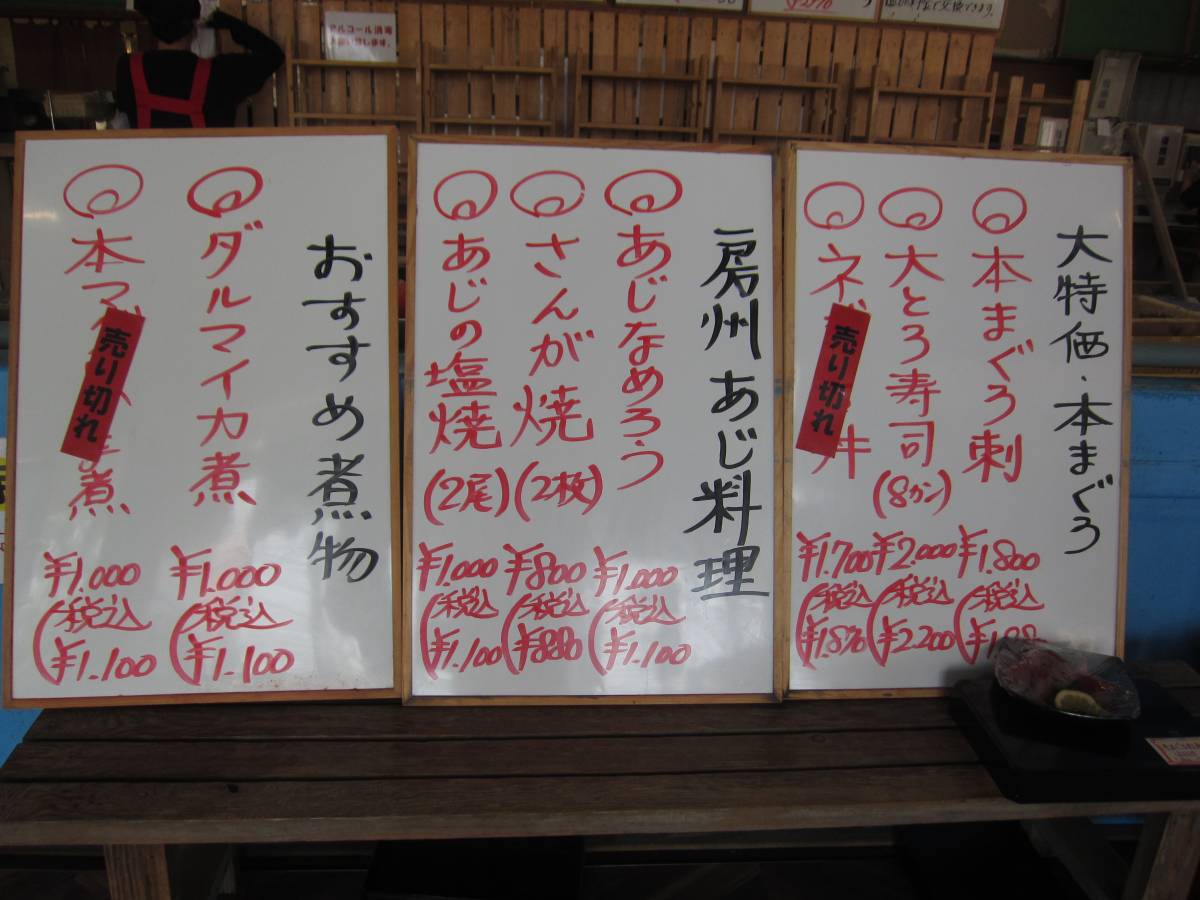 アルコール消毒
お願い致します。
大特価・本まぐろ
本まぐろ刺
¥1.800
(税込
大とろ寿司
(8カン)
¥2.000
(税込
¥2.200
売り切れ
丼
¥1.700
(税込
¥1.870
房州あじ料理
あじなめろう
¥1.000
(税込
¥1.100
さんが焼
(2枚)
¥800
(税込
¥880
あじの塩焼
(2尾)
¥1.000
(税込
¥1.100
おすすめ煮物
ダルマイカ煮
¥1.000
(税込
¥1.100
本マ
売り切れ
煮
¥1.000
(税込
¥1.100